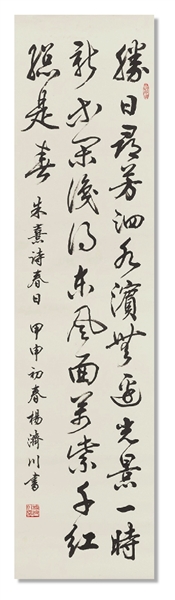 勝日尋芳泗水濱無邊光景一時
新等閒識得東風面萬紫千紅
總是春
朱熹詩春日 甲申初春楊濟川書